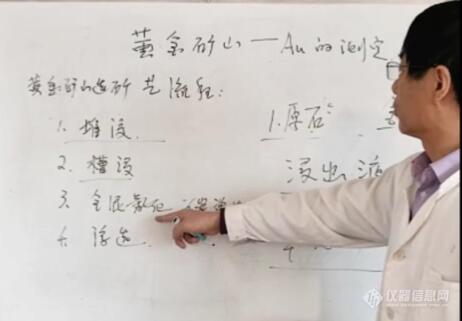 黄金矿山—Au的测定
黄金矿山选矿艺流程:
1. 堆浸
2. 槽浸
3. 全泥氰化
4. 浮选
1. 原石
浸出液
仪器信息网